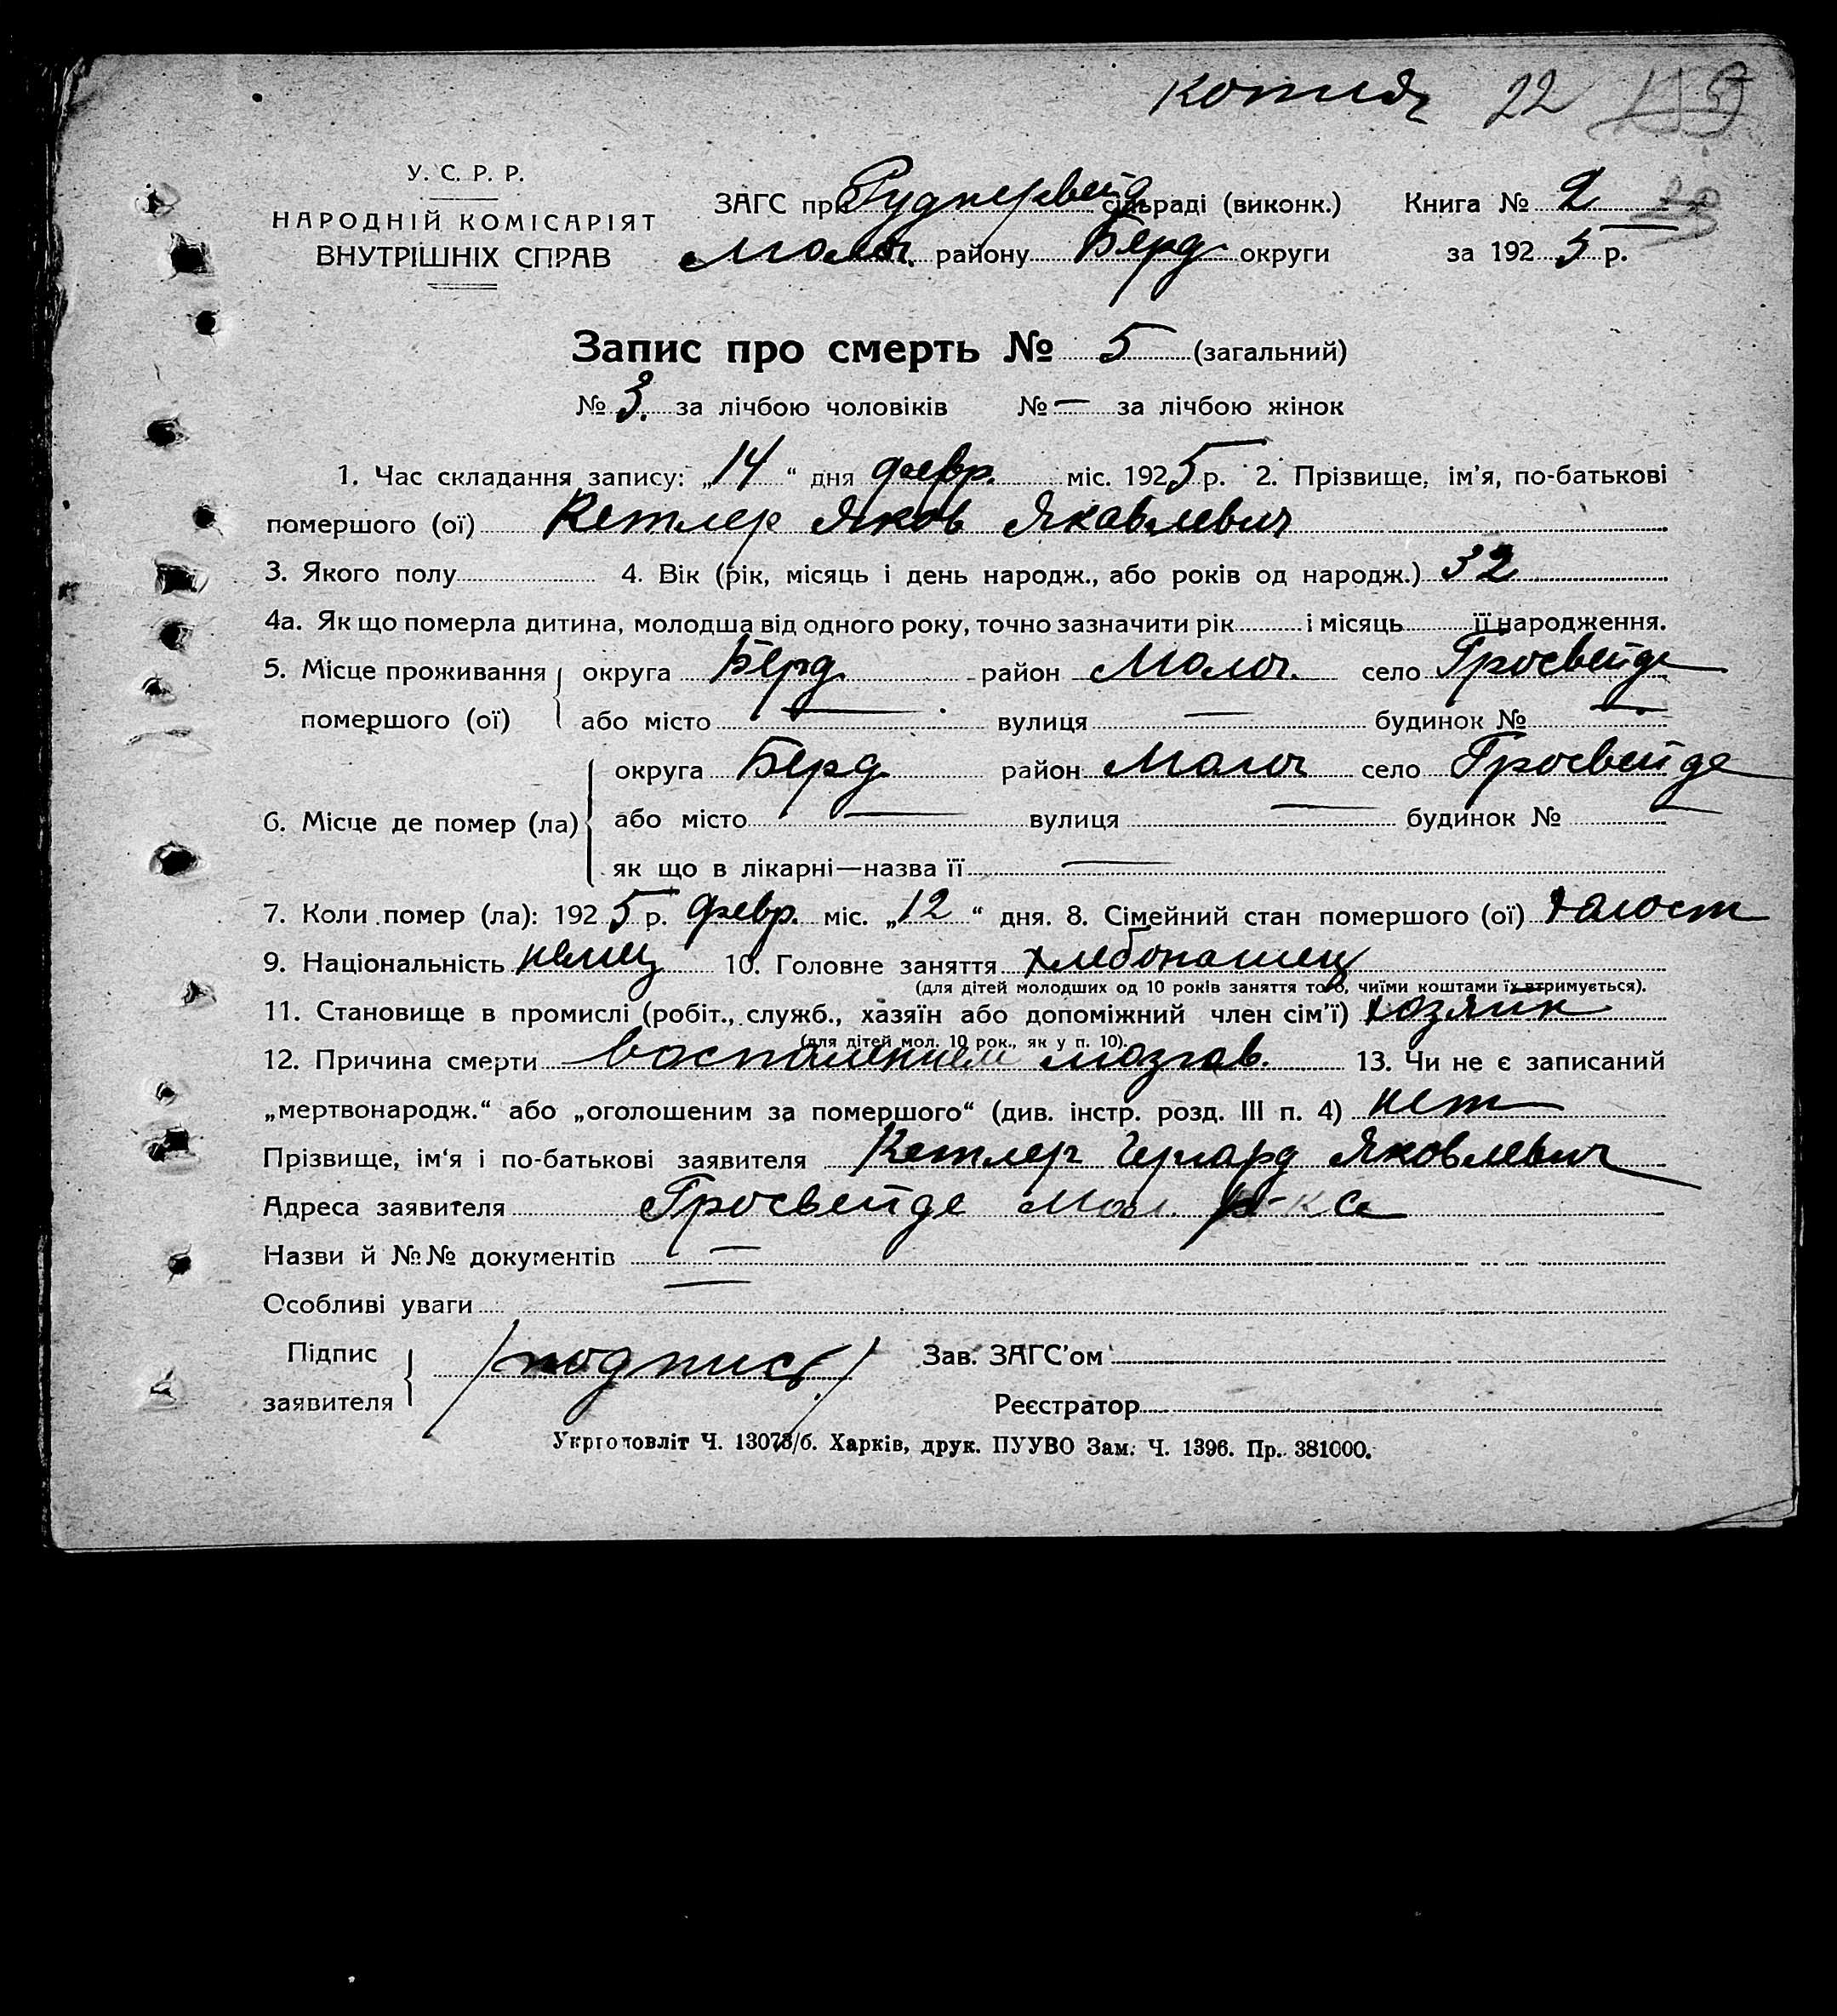 Копия 22
У. С. Р. Р.
НАРОДНІЙ КОМІСАРІЯТ
ВНУТРІШНІХ СПРАВ
ЗАГС при Руднервейд сільраді (виконк.)
Молоч. району Берд. округи
Книга № 2
за 1925 р.
Запис про смерть № 5 (загальний)
№ 3. за лічбою чоловіків № — за лічбою жінок
1. Час складання запису: „14“ дня февр. міс. 1925 р. 2. Прізвище, ім’я, по-батькові
помершого (ої) Кетлер Яков Якавлевич
3. Якого полу 4. Вік (рік, місяць і день народж., або років од народж.) 32
4а. Як що померла дитина, молодша від одного року, точно зазначити рік і місяць її народження.
5. Місце проживання помершого (ої) округа Берд. район Молоч. село Гросвейде
або місто — вулиця — будинок № —
6. Місце де помер (ла) округа Берд. район Молоч село Гросвейде
або місто — вулиця — будинок № —
як що в лікарні—назва її —
7. Коли помер (ла): 1925 р. февр. міс. „12“ дня. 8. Сімейний стан помершого (ої) халост
9. Національність немец 10. Головне заняття хлебопашец
(для дітей молодших од 10 років заняття того, чиїми коштами їх втримується).
11. Становище в промислі (робіт., служб., хазяїн або допоміжний член сім’ї) хозяин
(для дітей мол. 10 рок., як у п. 10).
12. Причина смерти воспалением мозгов. 13. Чи не є записаний
„мертвонародж.“ або „оголошеним за помершого“ (див. інстр. розд. III п. 4) нет
Прізвище, ім‘я і по-батькові заявителя Кетлер Гергард Яковлевич
Адреса заявителя Гросвейде Мол. р-на
Назви й №№ документів —
Особливі уваги —
Підпис заявителя /подпись/ Зав. ЗАГС’ом
Реєстратор
Укрголовліт Ч. 13073/б. Харків, друк. ПУУВО Зам. Ч. 1396. Пр. 381000.